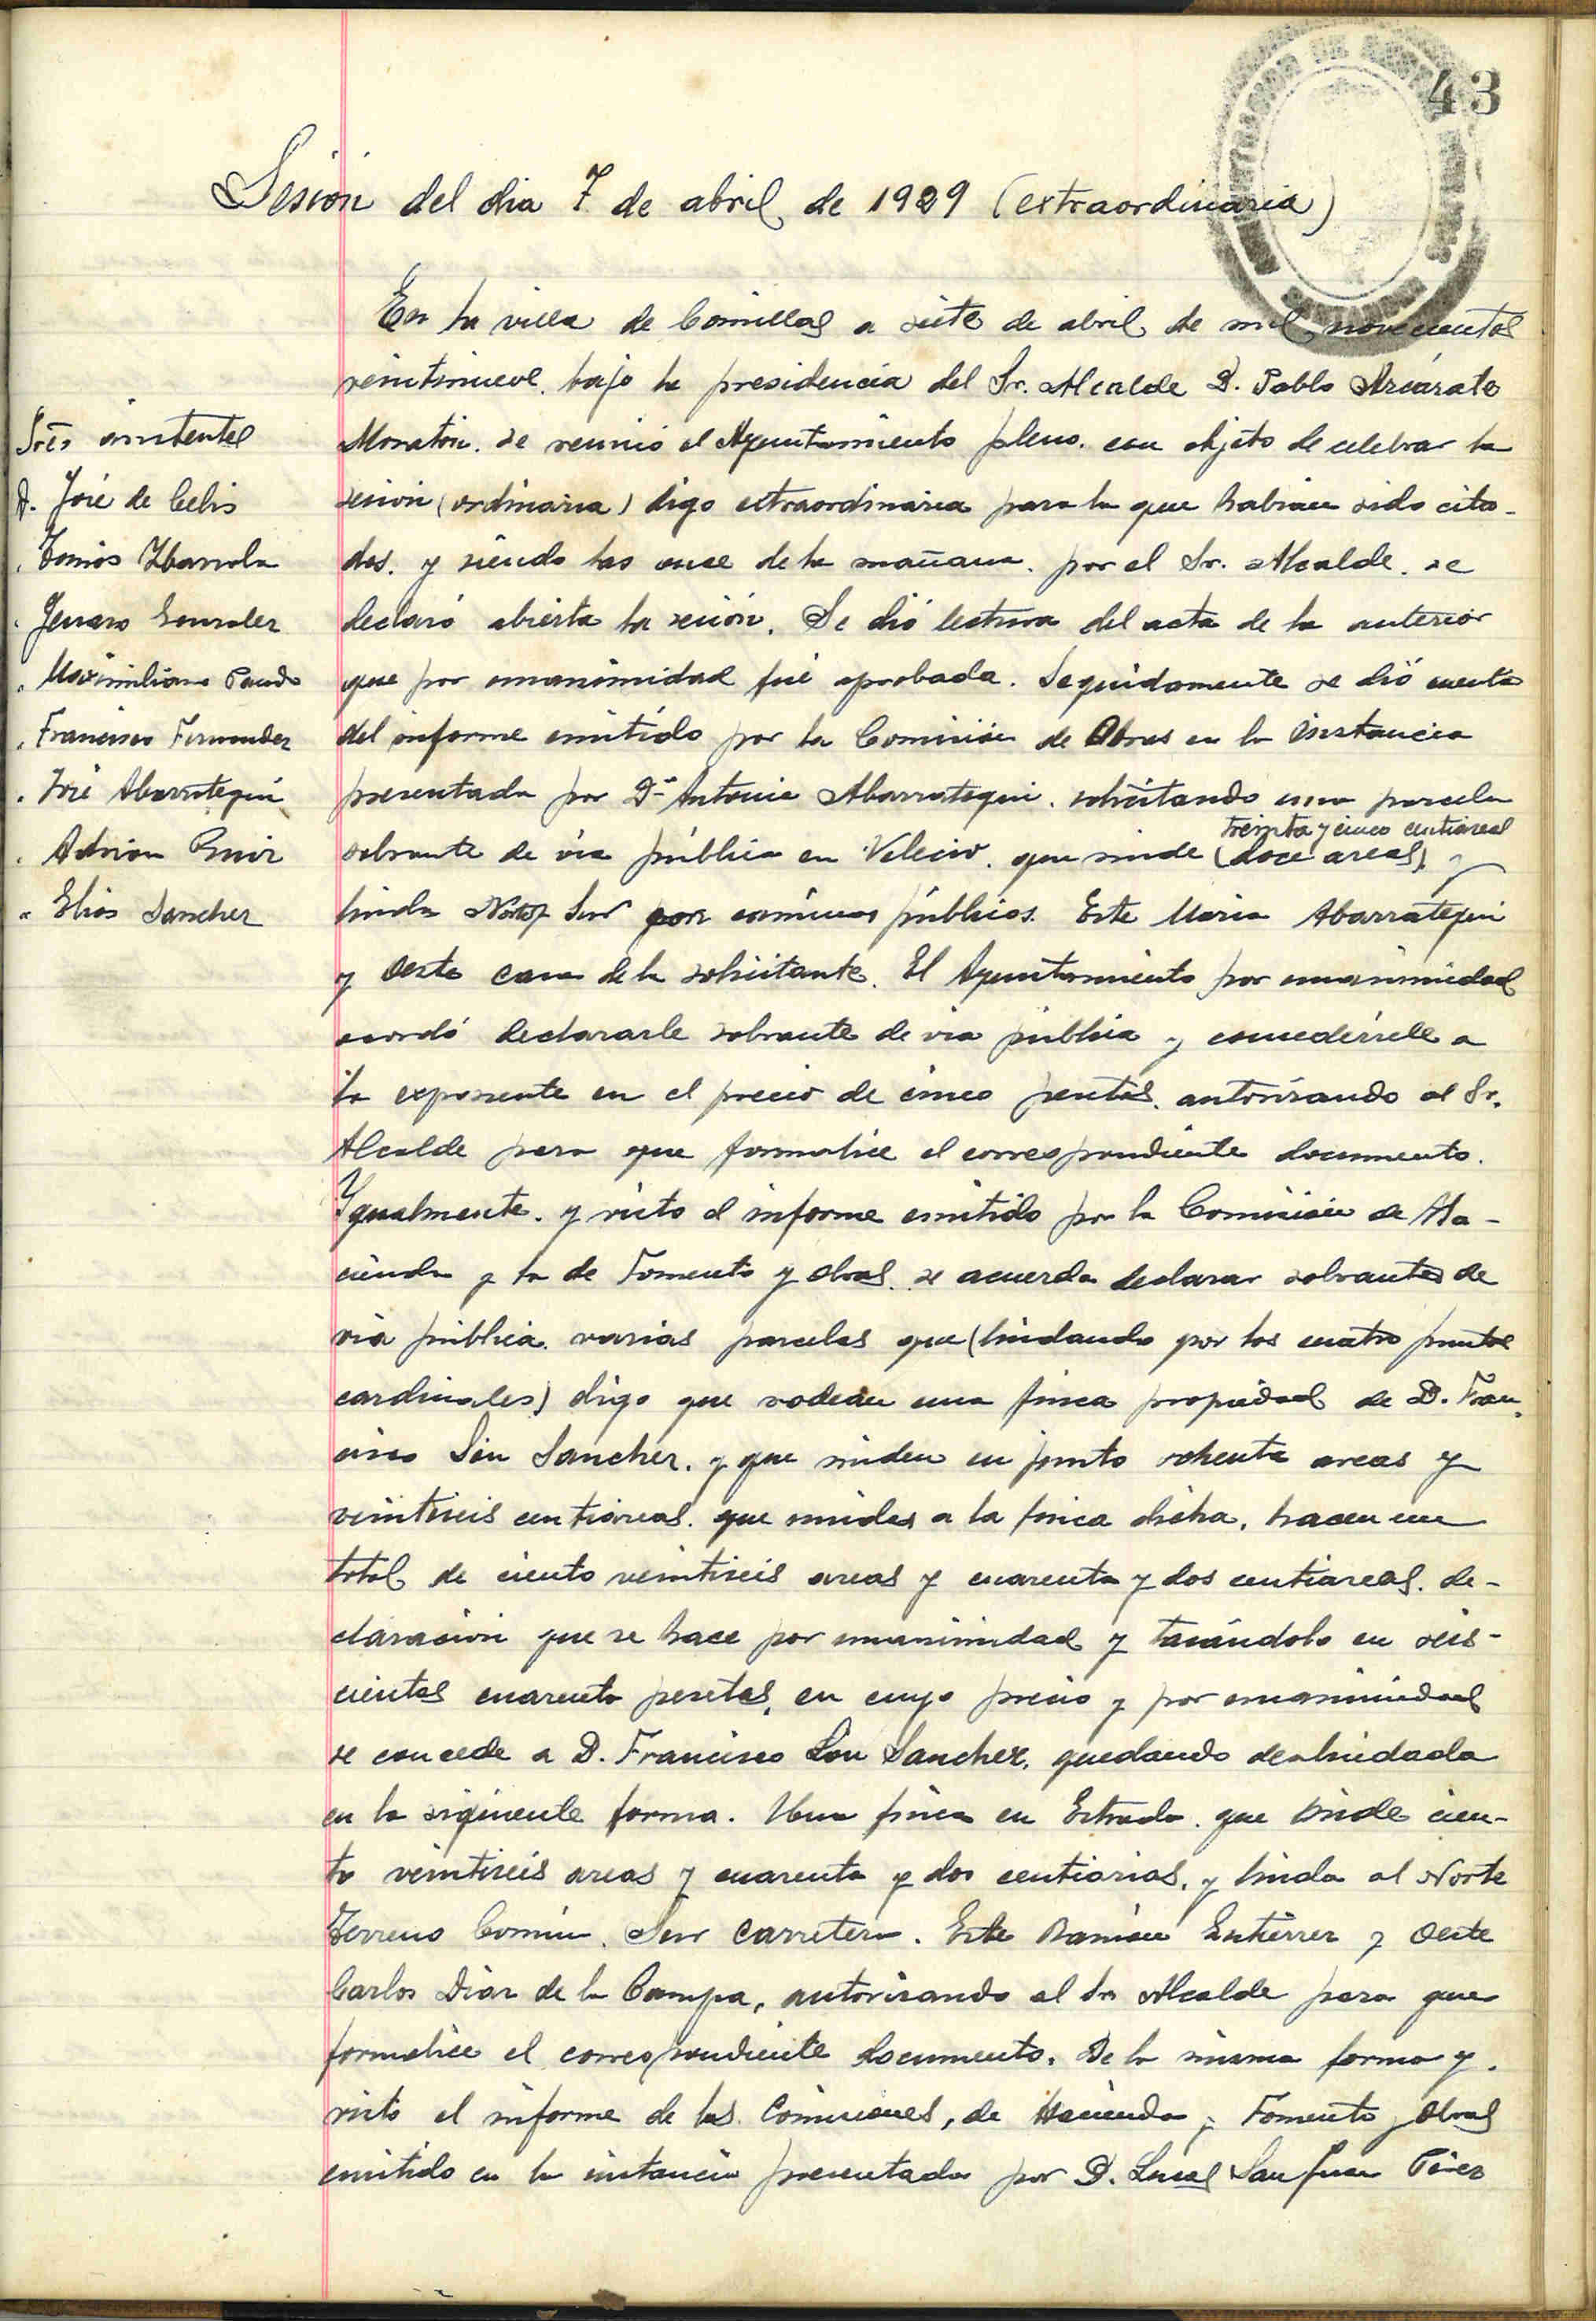 43
Sesión del dia 7 de abril de 1929 (extraordinaria)
En la villa de Comillas a siete de abril de mil novecientos
veintinueve. bajo la presidencia del Sr. Alcalde D. Pablo Azcárate
Monatón. se reunió el Ayuntamiento pleno. con objeto de celebrar la
sesión (ordinaria) digo extraordinaria para la que habian sido cita-
dos. y siendo las once de la mañana. por el Sr. Alcalde. se
declaró abierta la sesión. Se dió lectura del acta de la anterior
que por unanimidad fué aprobada. Seguidamente se dió cuenta
del informe emitido por la Comisión de Obras en la instancia
presentada por Dª Antonia Abarrategui. solicitando una parcela
treinta y cinco centiareas
sobrante de via pública en Velecio. que mide (doce areas) y
linda Norte y Sur con caminos públicos. Este Maria Abarrategui
y Oeste casa de la solicitante. El Ayuntamiento por unanimidad
acordó declararle sobrante de via pública y concedérsele a
la exponente en el precio de cinco pesetas. autorizando al Sr.
Alcalde para que formalice el correspondiente documento.
Ygualmente. y visto el informe emitido por la Comisión de Ha-
cienda y la de Fomento y obras. se acuerda declarar sobrantes de
via pública. varias parcelas que (lindando por los cuatro puntos
cardinales) digo que rodean una finca propiedad de D. Fran-
cisco Sanchez. y que miden en junto ochenta areas y
veintiseis centiareas. que unidas a la finca dicha. hacen un
total de ciento veintiseis areas y cuarenta y dos centiareas. de-
claración que se hace por unanimidad y tasándolo en seis-
cientas cuarenta pesetas, en cuyo precio y por unanimidad
se concede a D. Francisco Sanchez. quedando deslindada
en la siguiente forma. Una finca en Estrada. que mide cien-
to veintiseis areas y cuarenta y dos centiarias. y linda al Norte
Terreno Común. Sur carretera. Este Ramón Gutiérrez y Oeste
Carlos Diaz de la Campa, autorizando al Sr. Alcalde para que
formalice el correspondiente documento. De la misma forma y.
visto el informe de las Comisiones, de Hacienda y Fomento y Obras
emitido en la instancia presentada por D. Lucas San Juan Pérez
Srēs asistentes
D. José de Celis
" Tomás Ybarrola
" Jenaro Gonzalez
" Maximiliano Pando
" Francisco Fernandez
" José Abarrategui
" Adrian Ruiz
" Elias Sanchez